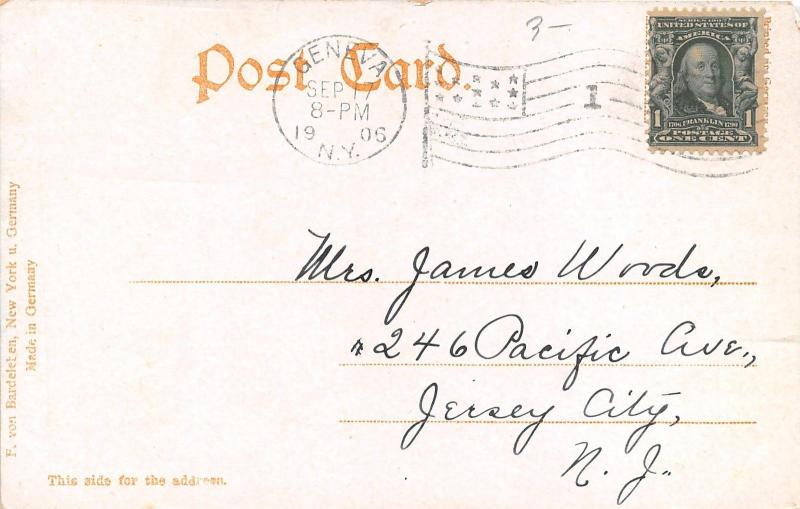 3-
Post Card.
GENEVA
SEP 7
8-PM
19 06
N.Y.
1
SERIES 1902
UNITED STATES OF
AMERICA
1 1706 FRANKLIN 1790 1
POSTAGE
ONE CENT
Mrs. James Woods,
#246 Pacific Ave.,
Jersey City,
N. J.
F. von Bardeleben, New York u. Germany
Made in Germany
This side for the address.